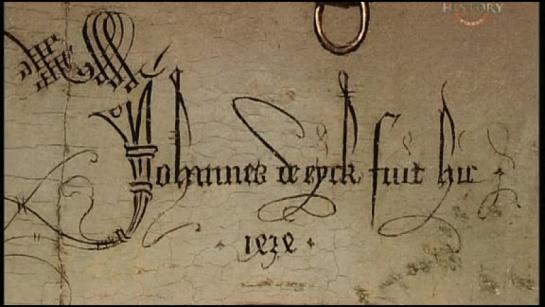 HISTORY
Johannes de eyck fuit hic
1434